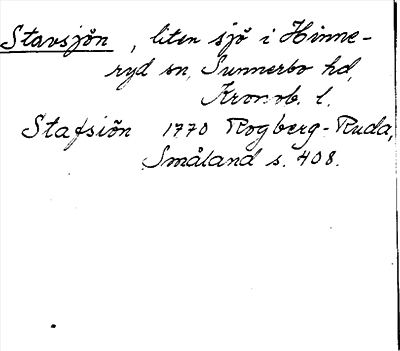 Stavsjön, liten sjö i Hinne-
ryd sn, Sunnerbo hd,
Kronob. l.
Stafsiön 1770 Rogberg-Ruda,
Småland s. 408.